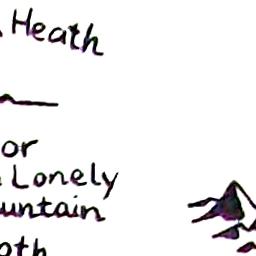 Heath
or
Lonely
untain